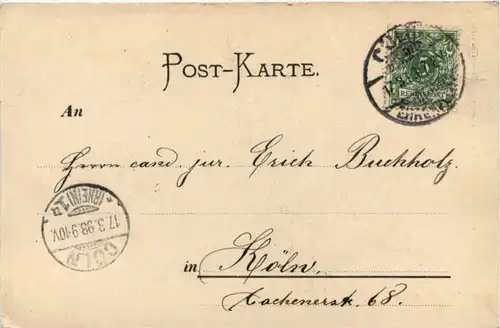 POST-KARTE.
An
Herrn cand. jur. Erich Buchholz.
in Köln.
Aachenerstr. 68.
CÖLN
17.3.98.9-10V.
*(RHEIN)1q
5